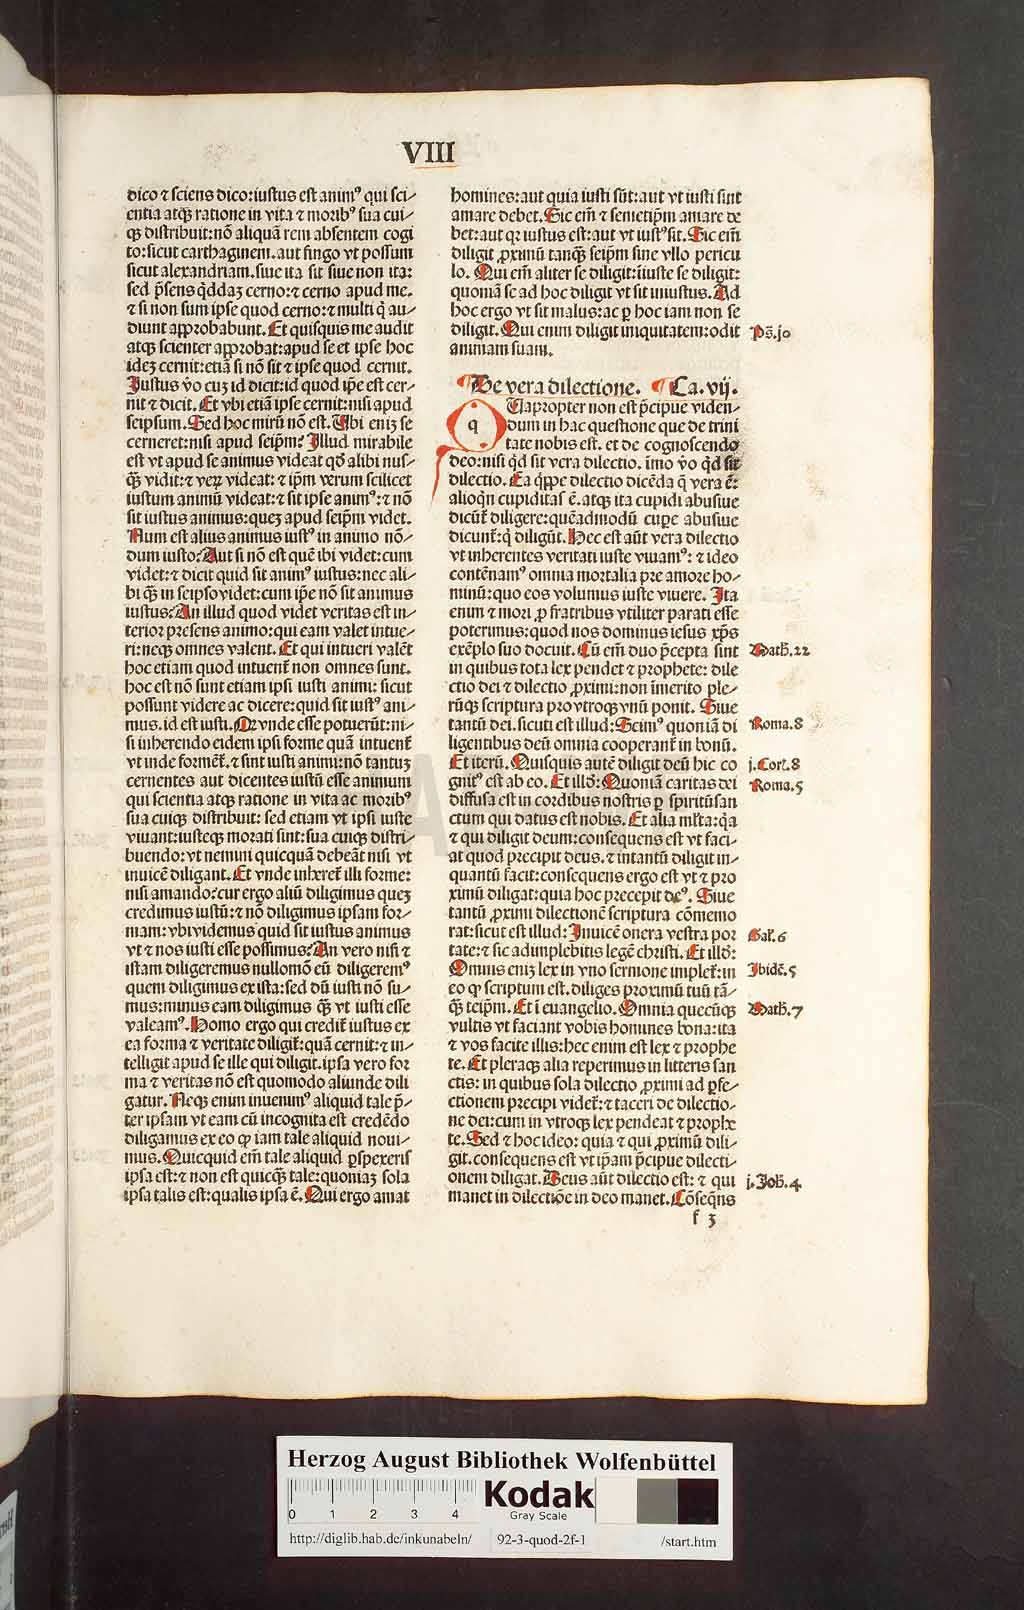 VIII
dico ⁊ sciens dico: iustus est animꝰ qui sci⸗
entia atqꝫ ratione in vita ⁊ moribꝰ sua cui⸗
qꝫ distribuit: nō aliquā rem absentem cogi
to: sicut carthaginem. aut fingo vt possum
sicut alexandriam. siue ita sit siue non ita:
sed p̄sens q̇ddaꝫ cerno: ⁊ cerno apud me.
⁊ si non sum ipse quod cerno: ⁊ multi q̇ au⸗
diunt approbabunt. Et quisquis me audit
atqꝫ scienter approbat: apud se et ipse hoc
ideꝫ cernit: etiā si nō sit ⁊ ipse quod cernit.
Iustus v̄o cuꝫ id dicit: id quod ip̄e est cer⸗
nit ⁊ dicit. Et vbi etiā ipse cernit: nisi apud
seipsum. Sed hoc mirū nō est. Ubi eniꝫ se
cerneret: nisi apud seip̄m? Illud mirabile
est vt apud se animus videat qd̄ alibi nus⸗
q̄ꝫ vidit: ⁊ veꝝ videat: ⁊ ip̄m verum scilicet
iustum animū videat: ⁊ sit ipse animꝰ: ⁊ nō
sit iustus animus: queꝫ apud seip̄m videt.
Num est alius animus iustꝰ in animo nō⸗
dum iusto? Aut si nō est quē ibi videt: cum
videt: ⁊ dicit quid sit animꝰ iustus: nec ali⸗
bi q̄ꝫ in seipso videt: cum ip̄e nō sit animus
iustus? An illud quod videt veritas est in⸗
terior presens animo: qui eam valet intue⸗
ri: neqꝫ omnes valent. Et qui intueri valēt
hoc etiam quod intuent̄ non omnes sunt.
hoc est nō sunt etiam ipsi iusti animi: sicut
possunt videre ac dicere: quid sit iustꝰ ani⸗
mus. id est iusti. Qr vnde esse potuerūt: ni⸗
si inherendo eidem ipsi forme quā intuent̄
vt inde formēt̄. ⁊ sint iusti animi: nō tantuꝫ
cernentes aut dicentes iustū esse animum
qui scientia atqꝫ ratione in vita ac moribꝰ
sua cuiqꝫ distribuit: sed etiam vt ipsi iuste
viuant: iusteqꝫ morati sint: sua cuiqꝫ distri⸗
buendo: vt nemini quicquā debeāt nisi vt
inuicē diligant. Et vnde inheret̄ illi forme:
nisi amando? cur ergo aliū diligimus queꝫ
credimus iustū: ⁊ nō diligimus ipsam for⸗
mam: vbi videmus quid sit iustus animus
vt ⁊ nos iusti esse possimus? An vero nisi ⁊
istam diligeremus nullomō eū diligeremꝰ
quem diligimus ex ista: sed dū iusti nō su⸗
mus: minus eam diligimus q̄ꝫ vt iusti esse
valeamꝰ. Homo ergo qui credit̄ iustus ex
ea forma ⁊ veritate diligit̄: quā cernit: ⁊ in⸗
telligit apud se ille qui diligit. ipsa vero for
ma ⁊ veritas nō est quomodo aliunde dili
gatur. Neqꝫ enim inuenimꝰ aliquid tale p̄⸗
ter ipsam vt eam cū incognita est credēdo
diligamus ex eo qꝙ iam tale aliquid noui⸗
mus. Quicquid em̄ tale aliquid ꝑspexeris
ipsa est: ⁊ non est quicqꝫ tale: quoniaꝫ sola
ipsa talis est: qualis ipsa ē. Qui ergo amat
homines: aut quia iusti sūt: aut vt iusti sint
amare debet. Sic em̄ ⁊ semetip̄m amare de
bet: aut qꝛ iustus est: aut vt iustꝰ sit. Sic em̄
diligit ꝓximū tanqꝫ seip̄m sine vllo pericu
lo. Qui em̄ aliter se diligit: iiuste se diligit:
quoniā se ad hoc diligit vt sit iniustus. Ad
hoc ergo vt sit malus: ac ꝑ hoc iam non se
diligit. Qui enim diligit iniquitatem: odit
animam suam.
Ps̄. jo
¶ De vera dilectione. ¶ Ca. vij.
q Uapropter non est p̄cipue viden⸗
dum in hac questione que de trini
tate nobis est. et de cognoscendo
deo: nisi q̇d sit vera dilectio. imo v̄o q̇d sit
dilectio. Ea q̇ppe dilectio dicēda q̄ vera ē:
alioqin cupiditas ē. atqꝫ ita cupidi abusiue
dicūt̄ diligere: quēadmodū cuꝑe abusiue
dicunt̄: q̇ diligūt. Hec est aūt vera dilectio
vt inherentes veritati iuste viuamꝰ: ⁊ ideo
contēnamꝰ omnia mortalia pre amore ho⸗
minū: quo eos volumus iuste viuere. Ita
enim ⁊ mori ꝓ fratribus vtiliter parati esse
poterimus: quod nos dominus iesus xp̄s
exēplo suo docuit. Cū em̄ duo p̄cepta sint
in quibus tota lex pendet ⁊ prophete: dile
ctio dei ⁊ dilectio ꝓximi: non īmerito ple⸗
rūqꝫ scriptura pro vtroqꝫ vnū ponit. Siue
tantū dei. sicuti est illud: Scimꝰ quoniā di
ligentibus deū omnia cooperant̄ in bonū.
Et iterū. Quisquis autē diligit deū hic co
gnitꝰ est ab eo. Et illd̄: Quoniā caritas dei
diffusa est in cordibus nostris ꝑ spiritū san
ctum qui datus est nobis. Et alia ml̄ta: q̇a
⁊ qui diligit deum: consequens est vt faci⸗
at quod precipit deus. ⁊ intantū diligit in⸗
quantū facit: consequens ergo est vt ⁊ pro
ximū diligat: quia hoc precepit deꝰ. Siue
tantū ꝓximi dilectionē scriptura cōmemo
rat: sicut est illud: Inuicē onera vestra por
tate: ⁊ sic adimplebitis legē christi. Et illd̄:
Omnis eniꝫ lex in vno sermone implet̄: in
eo qꝙ scriptum est. diliges proximū tuū tā⸗
q̄ꝫ teip̄m. Et ī euangelio. Omnia quecūqꝫ
vultis vt faciant vobis homines bona: ita
⁊ vos facite illis: hec enim est lex ⁊ prophe
te. Et pleraqꝫ alia reperimus in litteris san
ctis: in quibus sola dilectio ꝓximi ad ꝑfe⸗
ctionem precipi videt̄: ⁊ taceri de dilectio⸗
ne dei: cum in vtroqꝫ lex pendeat ⁊ prophe
te. Sed ⁊ hoc ideo: quia ⁊ qui ꝓximū dili⸗
git. consequens est vt ip̄am p̄cipue dilecti⸗
onem diligat. Deus aūt dilectio est: ⁊ qui
manet in dilectiōe in deo manet. Cōseq̄ns
Math̄. 22
Roma. 8
j. Cort̄. 8
Roma. 5
Gal̄. 6
Ibidē. 5
Math̄. 7
j. Joh̄. 4
f 3
Herzog August Bibliothek Wolfenbüttel
0 1 2 3 4
Kodak
Gray Scale
http://diglib.hab.de/inkunabeln/ 92-3-quod-2f-1 /start.htm